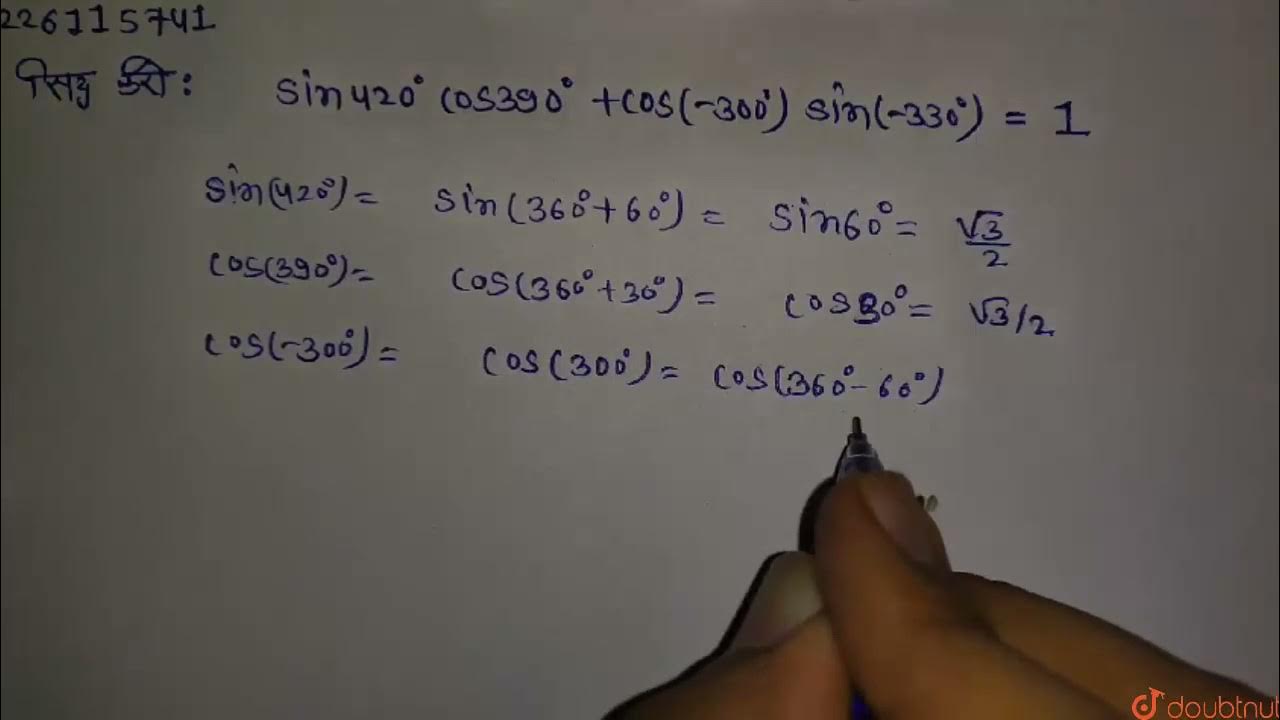 226115741
सिद्ध करो: sin420° cos390° +cos(-300°) sin(-330°) = 1
sin(420°)= sin(360°+60°)= sin60°= √3/2
cos(390°)= cos(360°+30°)= cos30°= √3/2
cos(-300°)= cos(300°)= cos(360°-60°)
doubtnut